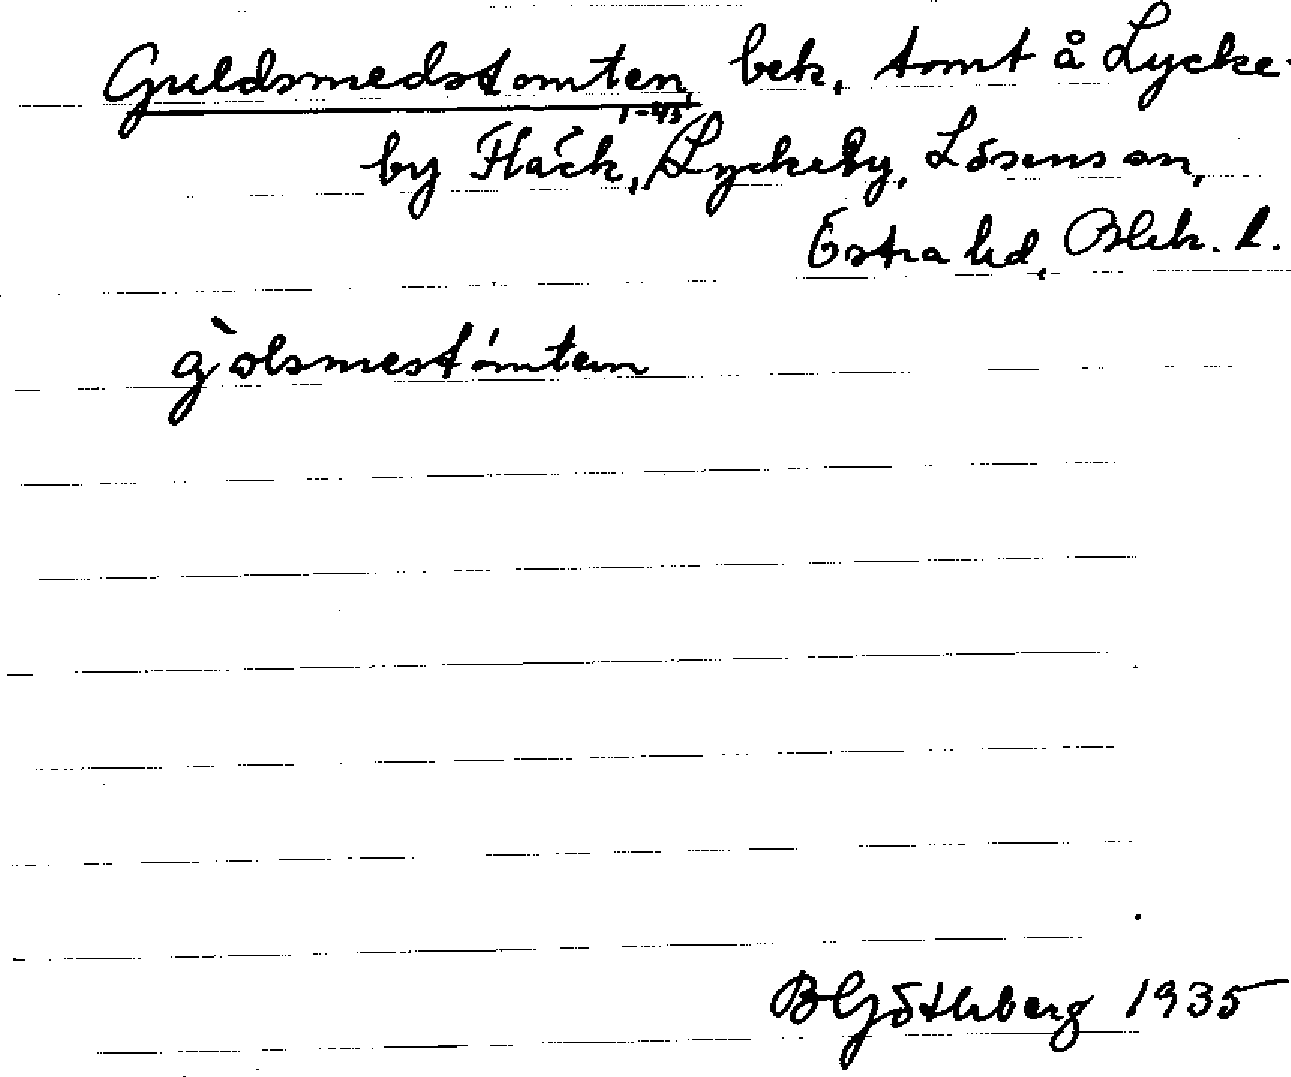 Guldsmedstomten, bek. tomt å Lycke-
1-45
by Fläck, Lyckeby, Lösens sn,
Östra hd, Blek. l.
g̀olsmest́omten
B Götlberg 1935